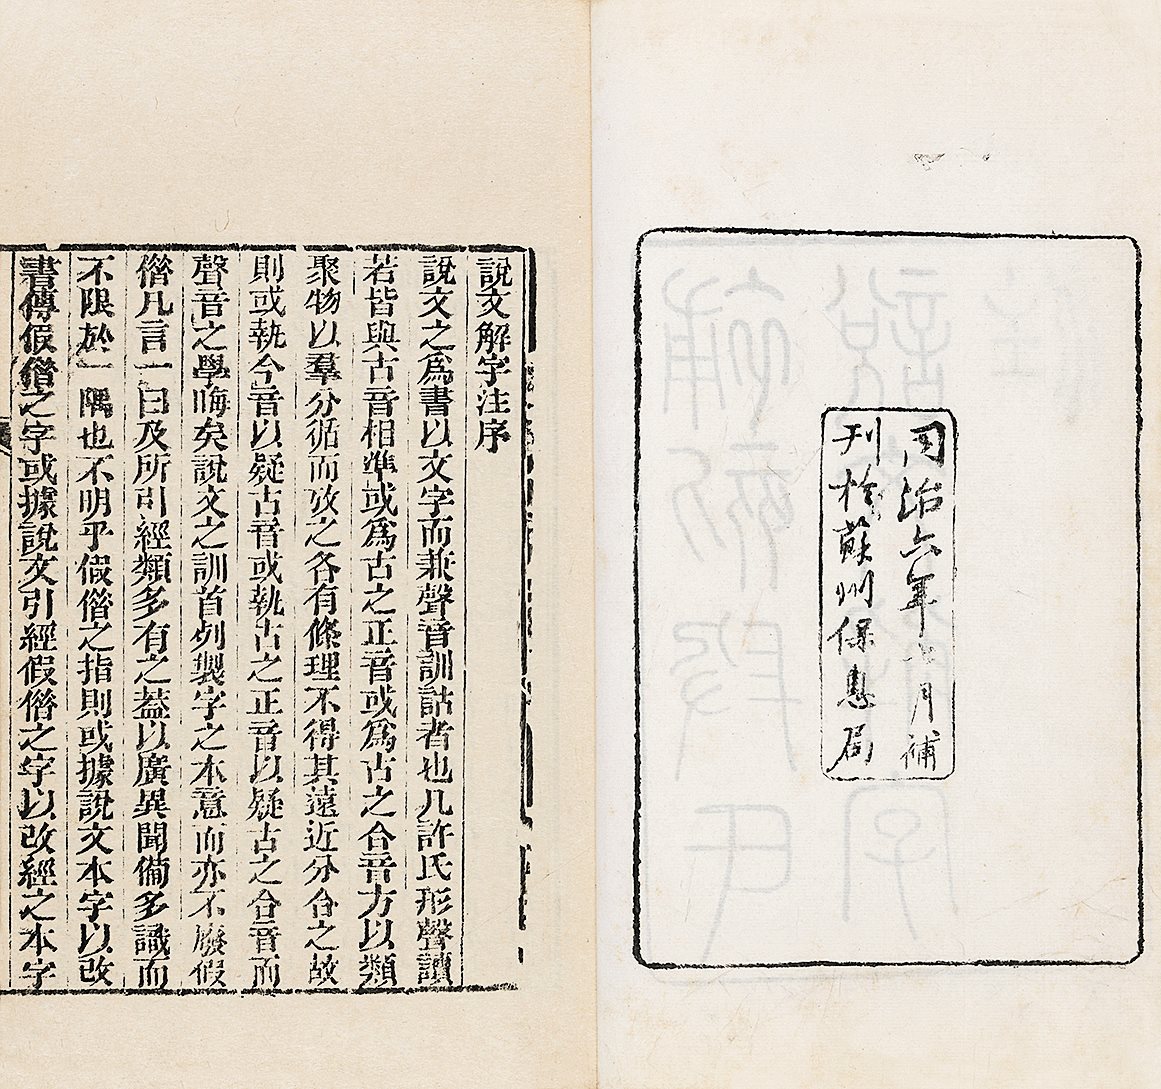 同治六年七月補
刊於蘇州保息局
說文解字注序
說文之爲書以文字而兼聲音訓詁者也凡許氏形聲讀
若皆與古音相準或爲古之正音或爲古之合音方以類
聚物以羣分循而攷之各有條理不得其遠近分合之故
則或執今音以疑古音或執古之正音以疑古之合音而
聲音之學晦矣說文之訓首列製字之本意而亦不廢假
借凡言一曰及所引經類多有之蓋以廣異聞備多識而
不限於一隅也不明乎假借之指則或據說文本字以改
書傳假借之字或據說文引經假借之字以改經之本字